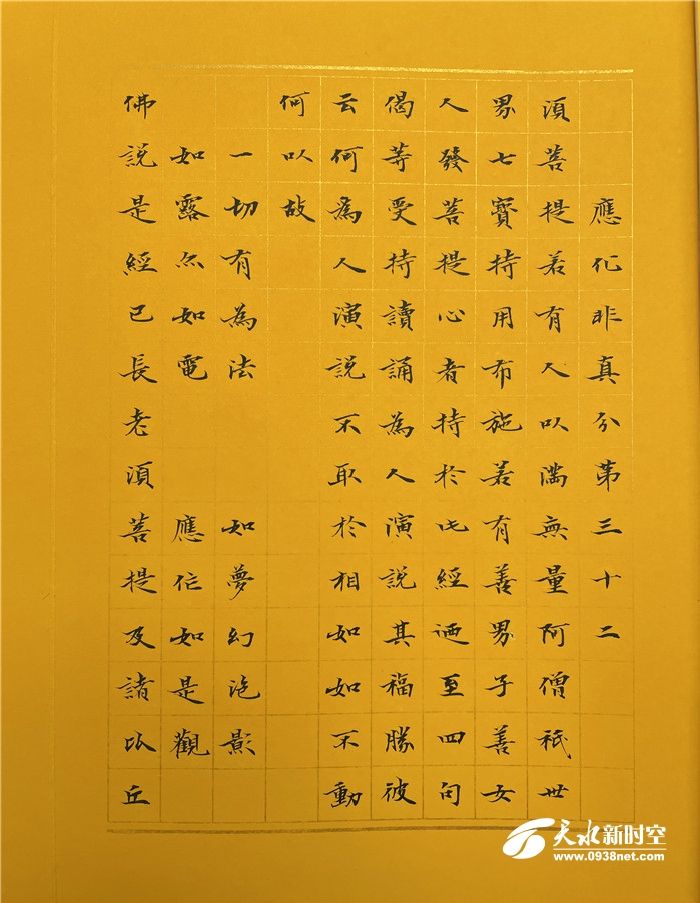 應化非真分第三十二
須菩提若有人以滿無量阿僧祇世
界七寶持用布施若有善男子善女
人發菩提心者持於此經迺至四句
偈等受持讀誦為人演說其福勝彼
云何為人演說不取於相如如不動
何以故
一切有為法 如夢幻泡影
如露亦如電 應作如是觀
佛說是經已長老須菩提及諸比丘
天水新时空
www.0938net.com